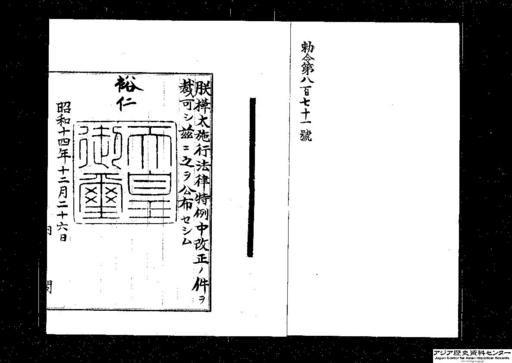 勅令第八百七十一號
朕樺太施行法律特例中改正ノ件ヲ
裁可シ茲ニ之ヲ公布セシム
裕仁
天皇
御璽
昭和十四年十二月二十六日
内閣
アジア歴史資料センター
Japan Center for Asian Historical Records